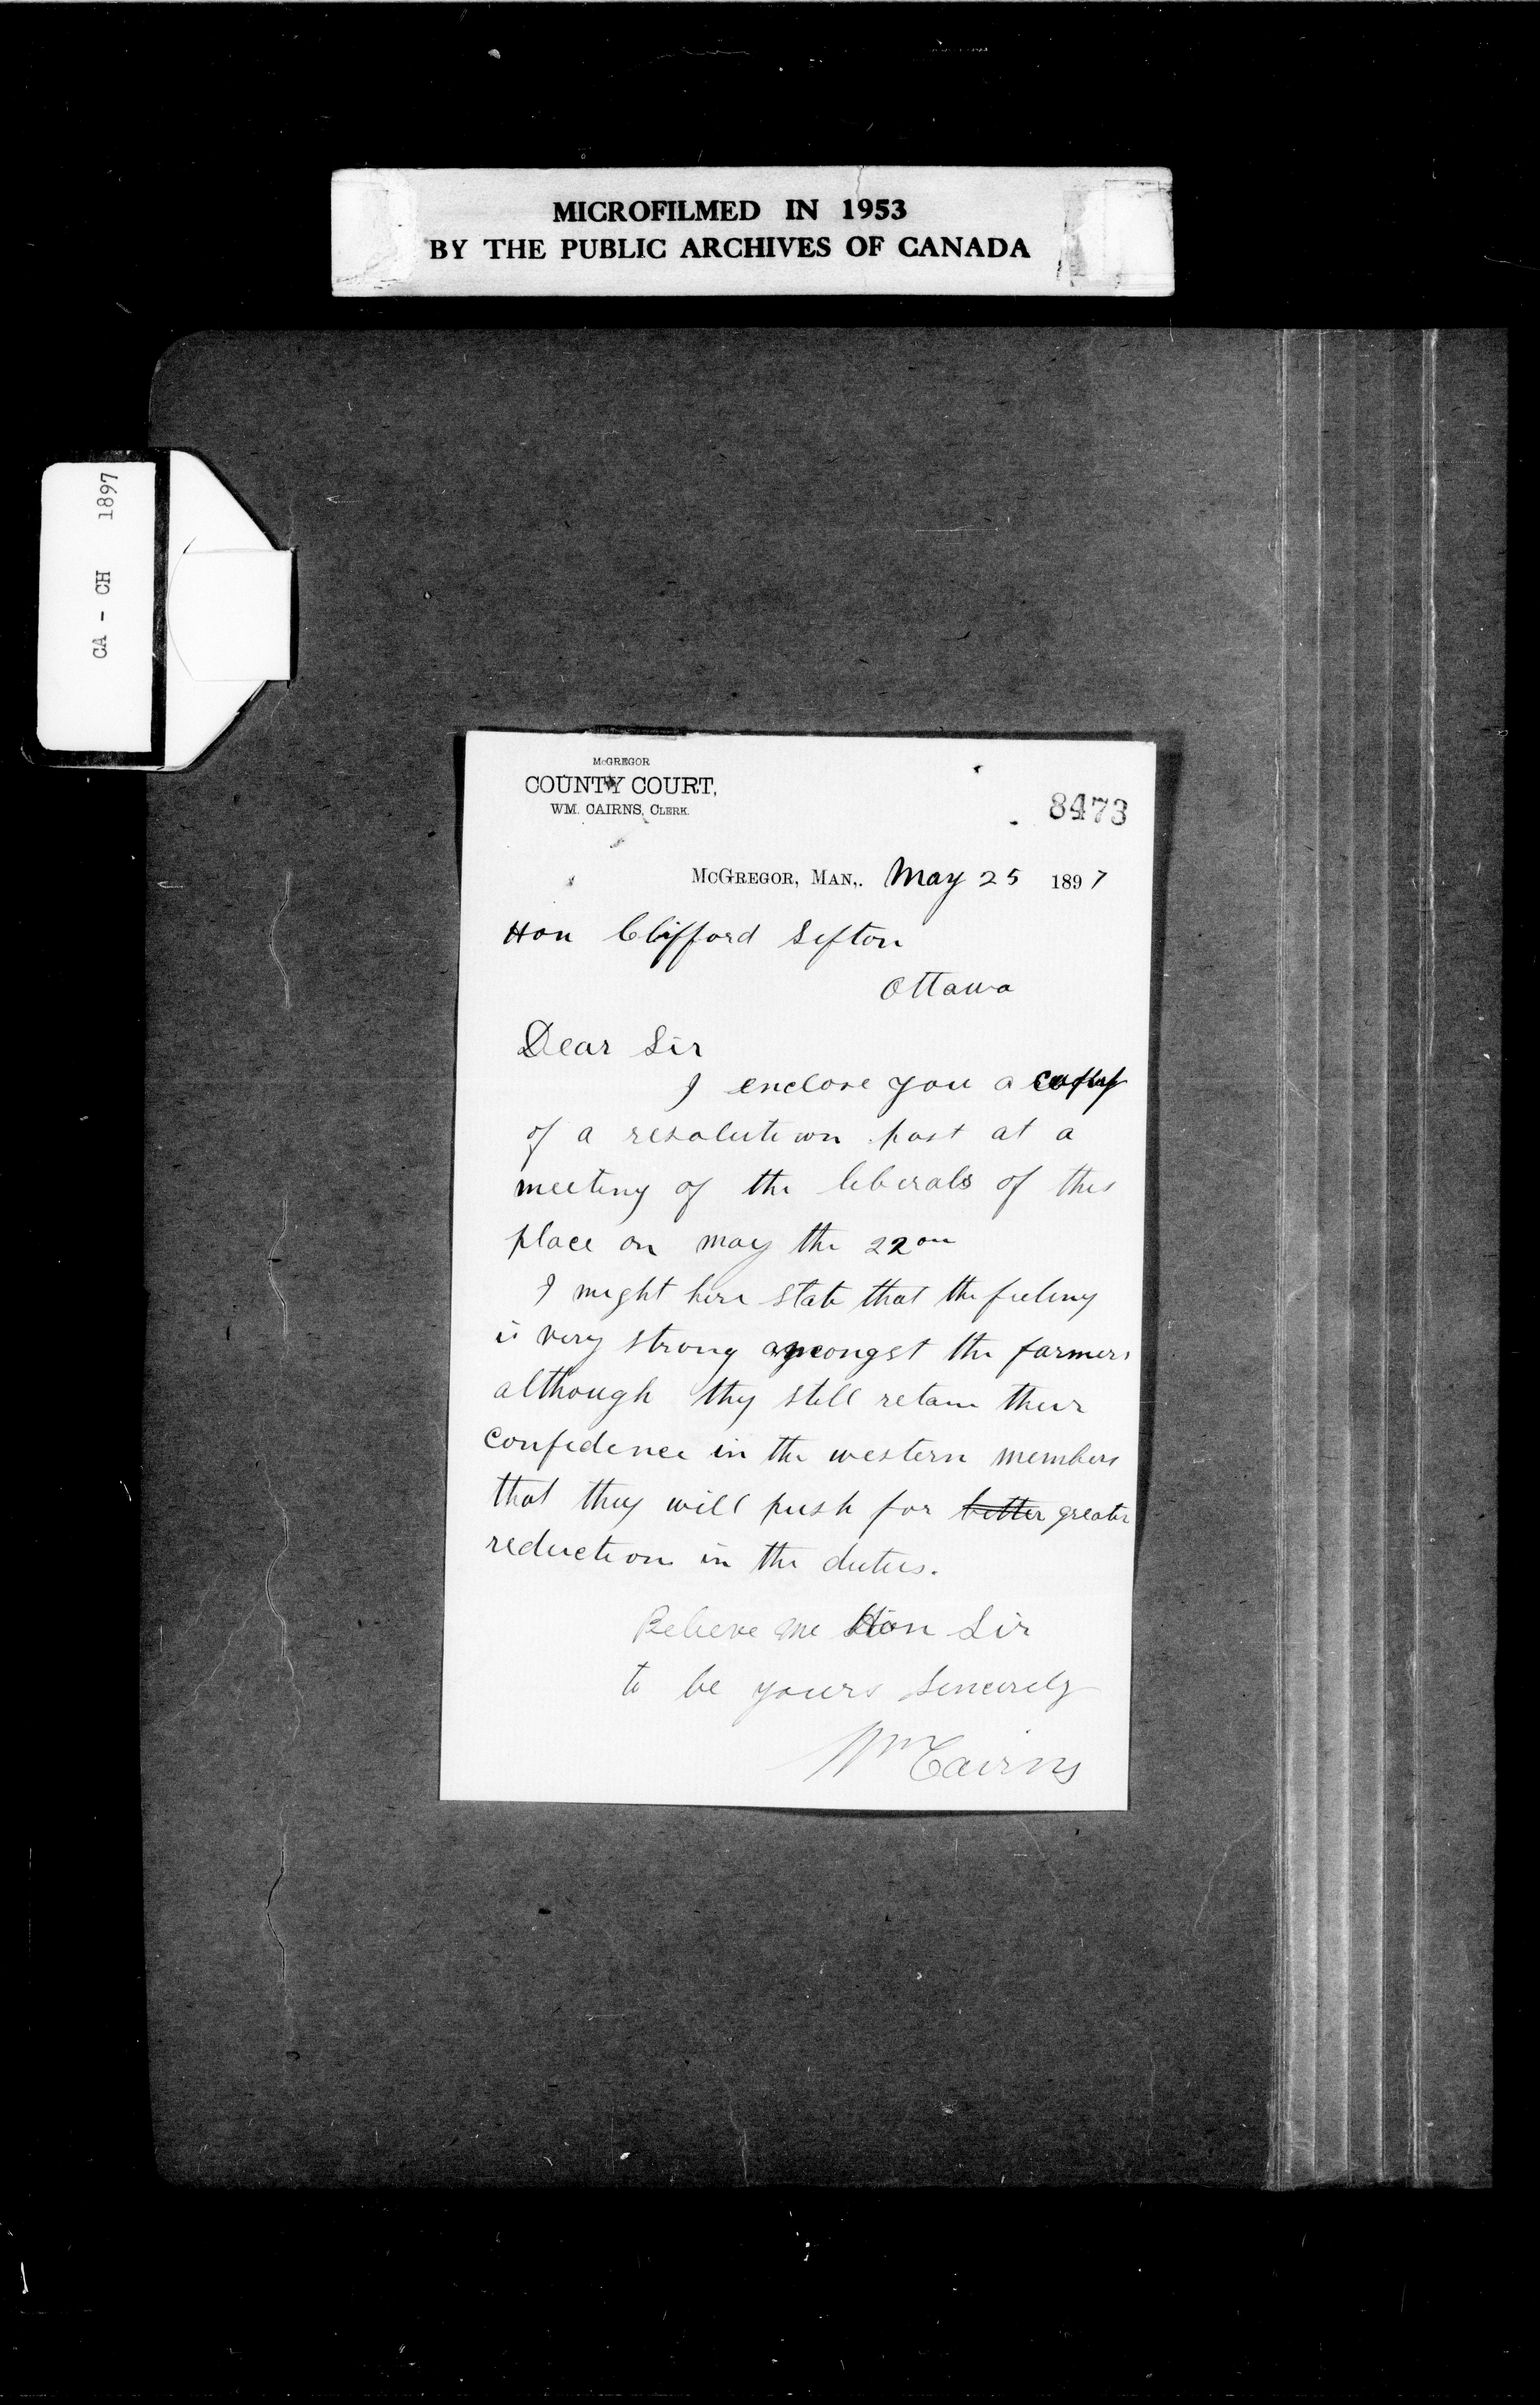 MICROFILMED IN 1953
BY THE PUBLIC ARCHIVES OF CANADA
CA - CH 1897
McGREGOR
COUNTY COURT,
WM. CAIRNS, CLERK.
8473
McGREGOR, MAN,. May 25 1897
Hon Clifford Sifton
Ottawa
Dear Sir
I enclose you a copy
of a resolution past at a
meeting of the liberals of this
place on may the 22on
I might here state that the feeling
is very strong amongst the farmers
although thy still retain their
confidence in the western members
that they will push for better greater
reduction in the duties.
Believe me Hon Sir
to be yours sincerely
Wm Cairns